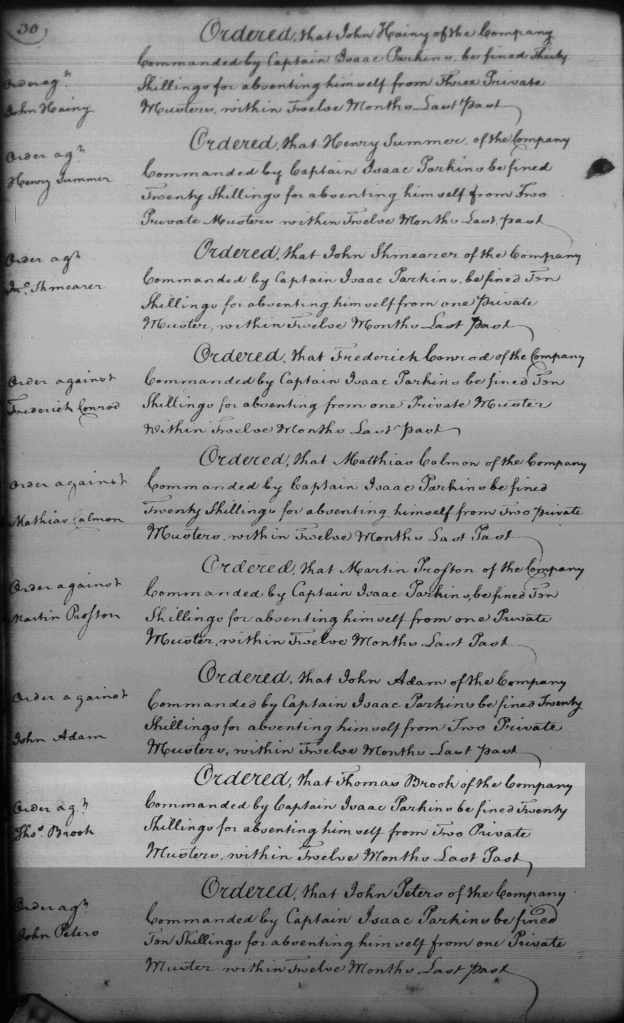 30,
Ordered, that John Hainy of the Company
Commanded by Captain Isaac Parkins, be fined Thirty
Order agt.
John Hainy
Shillings for absenting himself from Three Private
Musters, within Twelve Months Last Past
Ordered, that Henry Summer, of the Company
Order agt.
Henry Summer
Commanded by Captain Isaac Parkins be fined
Twenty Shillings for absenting himself from Two
Private Musters within Twelve Months Last, past
Ordered, that John Shmearer of the Company
Order agt
Jno. Shmearer
Commanded by Captain Isaac Parkins, be fined Ten
Shillings for absenting himself from one private
Muster, within Twelve Months Last Past
Ordered, that Frederick Conrod of the Company
Order against
Frederick Conrod
Commanded by Captain Isaac Parkins be fined Ten
Shillings for absenting from one Private Muster
within Twelve Months Last Past
Ordered, that Matthias Calmon of the Company
Order against
Mathias Calmon
Commanded by Captain Isaac Parkins be fined
Twenty Shillings for absenting himself from Two private
Musters, within Twelve Months Last Past
Ordered, that Martin Proston of the Company
Order against
Martin Proston
Commanded by Captain Isaac Parkins, be fined Ten
Shillings for absenting himself from one Private
Muster, within Twelve Months Last Past
Ordered, that John Adam of the Company
Order against
John Adam
Commanded by Captain Isaac Parkins be fined Twenty
Shillings for absenting himself from Two Private
Musters, within Twelve Months Last Past
Ordered, that Thomas Brook of the Company
Order agt
Thos. Brook
Commanded by Captain Isaac Parkins be fined Twenty
Shillings for absenting himself from Two Private
Musters, within Twelve Months Last Past
Ordered, that John Peters of the Company
Order agt
John Peters
Commanded by Captain Isaac Parkins be fined
Ten Shillings for absenting himself from one Private
Muster within Twelve Months Last past